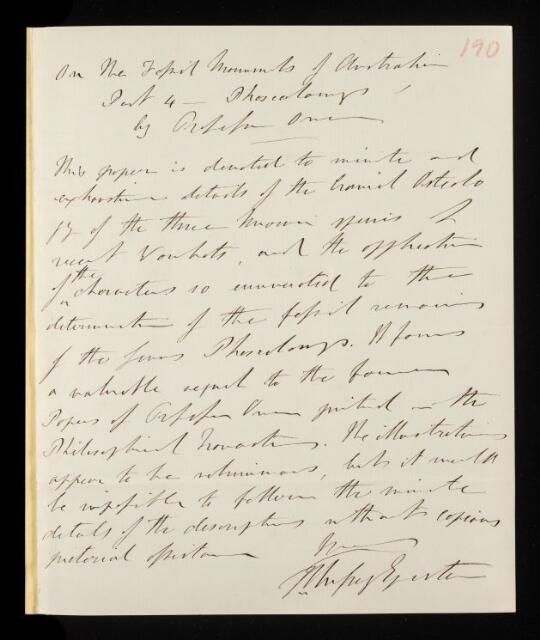 190
On the Fossil Mammals of Australia
Part 4 — Phascolomys
by Professor Owen
This paper is devoted to minute and
exhaustive details of the Cranial Osteolo
gy of the three known species of
recent Wombats, and the application
of the characters so enumerated to the
determination of the fossil remains
of the Genus Phascolomys. It forms
a valuable sequel to the former
Papers of Professor Owen printed in the
Philosophical Transactions. The illustrations
appear to be voluminous, but it would
be impossible to follow the minute
details of the descriptions without copious
pictorial
Egerton